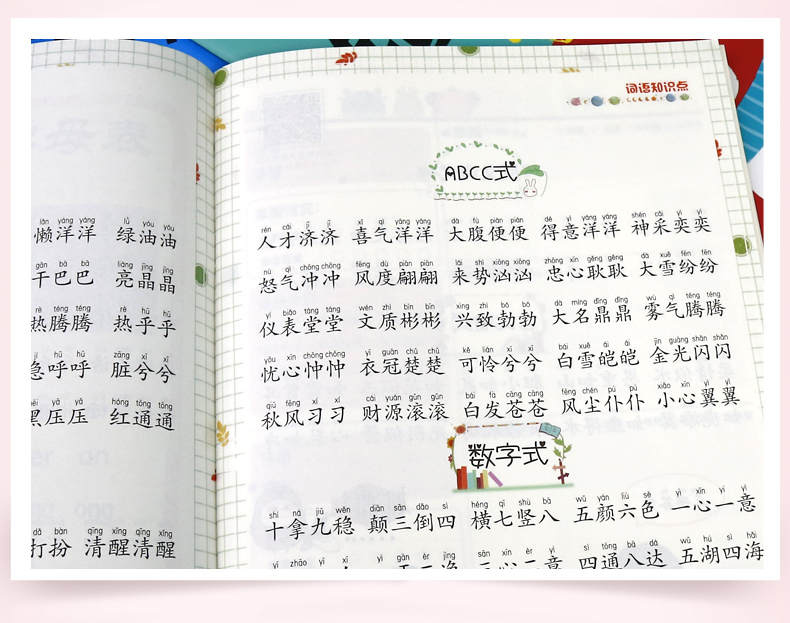 lǎn yáng yáng lǜ yóu yóu
懒洋洋 绿油油
gān bā bā liàng jīng jīng
干巴巴 亮晶晶
rè téng téng rè hū hū
热腾腾 热乎乎
jí hū hū zāng xī xī
急呼呼 脏兮兮
hēi yā yā hóng tōng tōng
黑压压 红通通
dǎ bàn qīng xǐng qīng xǐng
打扮 清醒清醒
词语知识点
ABCC式
rén cái jǐ jǐ xǐ qì yáng yáng dà fù pián pián dé yì yáng yáng shén cǎi yì yì
人才济济 喜气洋洋 大腹便便 得意洋洋 神采奕奕
nù qì chōng chōng fēng dù piān piān lái shì xiōng xiōng zhōng xīn gěng gěng dà xuě fēn fēn
怒气冲冲 风度翩翩 来势汹汹 忠心耿耿 大雪纷纷
yí biǎo táng táng wén zhì bīn bīn xìng zhì bó bó dà míng dǐng dǐng wù qì téng téng
仪表堂堂 文质彬彬 兴致勃勃 大名鼎鼎 雾气腾腾
yōu xīn chōng chōng yī guān chǔ chǔ kě lián xī xī bái xuě ái ái jīn guāng shǎn shǎn
忧心忡忡 衣冠楚楚 可怜兮兮 白雪皑皑 金光闪闪
qiū fēng xí xí cái yuán gǔn gǔn bái fà cāng cāng fēng chén pú pú xiǎo xīn yì yì
秋风习习 财源滚滚 白发苍苍 风尘仆仆 小心翼翼
数字式
shí ná jiǔ wěn diān sān dǎo sì héng qī shù bā wǔ yán liù sè yì xīn yí yì
十拿九稳 颠三倒四 横七竖八 五颜六色 一心一意
sì tōng bā dá wǔ hú sì hǎi
三心二意 四通八达 五湖四海